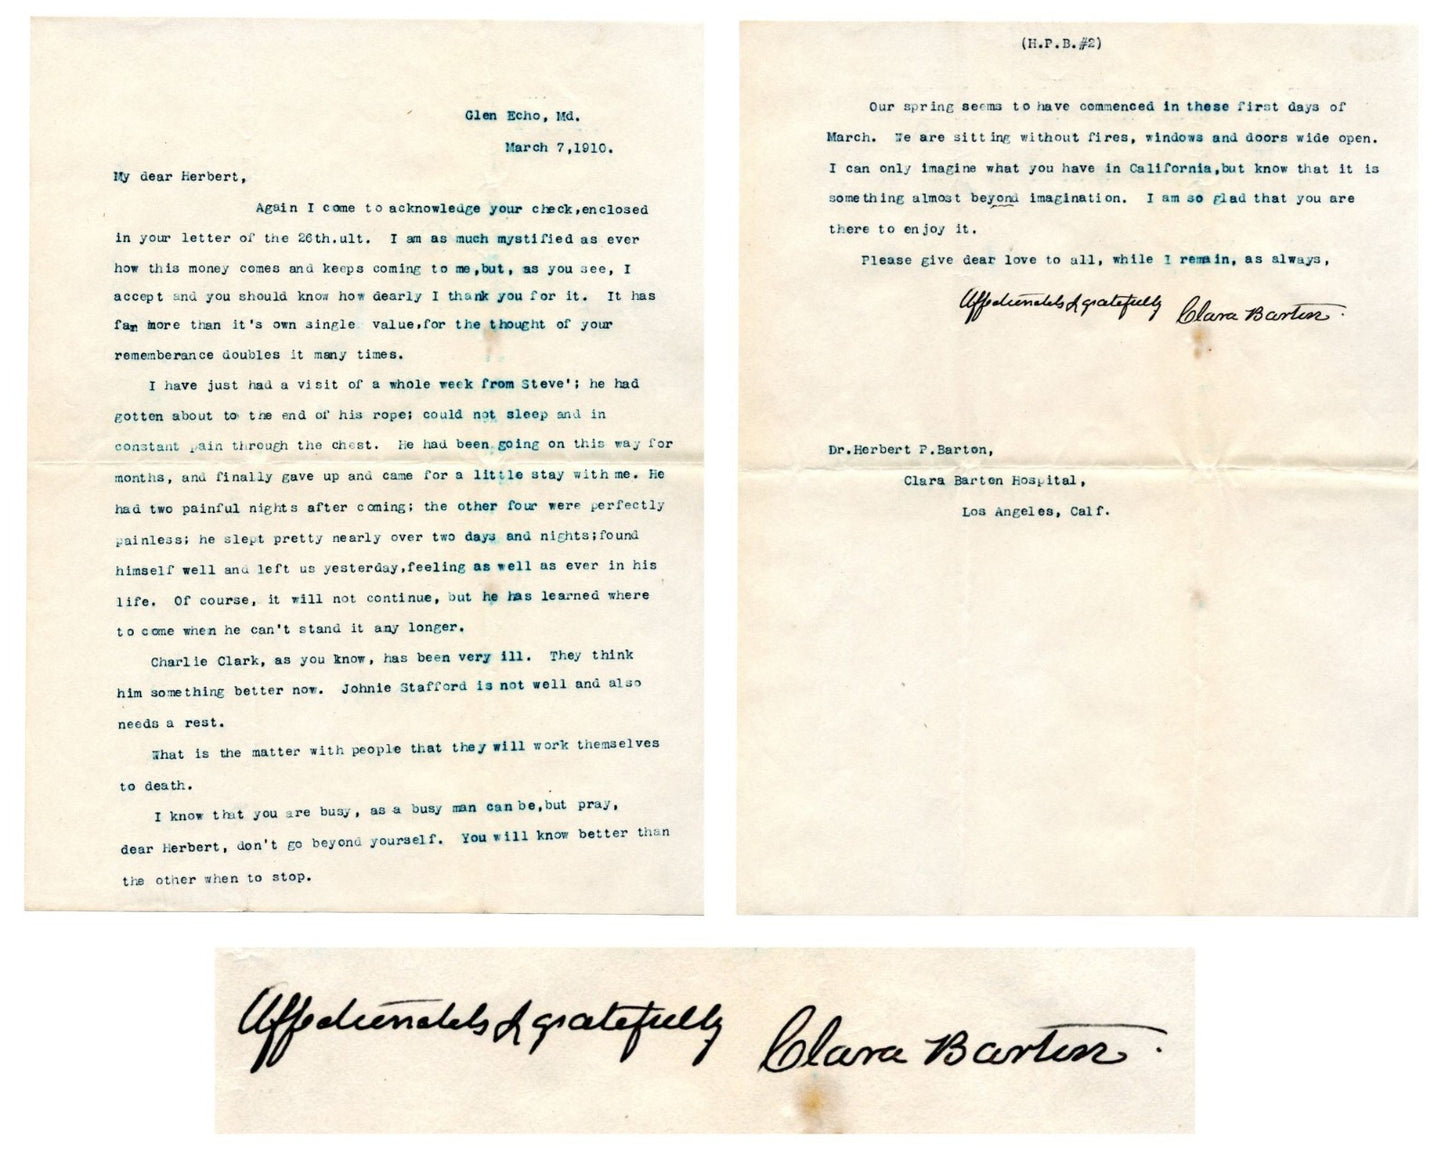 Glen Echo, Md.
March 7,1910.
My dear Herbert,
Again I come to acknowledge your check,enclosed
in your letter of the 26th.ult. I am as much mystified as ever
how this money comes and keeps coming to me,but, as you see, I
accept and you should know how dearly I thank you for it. It has
far more than it's own single value,for the thought of your
rememberance doubles it many times.
I have just had a visit of a whole week from Steve'; he had
gotten about to the end of his rope; could not sleep and in
constant pain through the chest. He had been going on this way for
months, and finally gave up and came for a little stay with me. He
had two painful nights after coming; the other four were perfectly
painless; he slept pretty nearly over two days and nights;found
himself well and left us yesterday,feeling as well as ever in his
life. Of course, it will not continue, but he has learned where
to come when he can't stand it any longer.
Charlie Clark, as you know, has been very ill. They think
him something better now. Johnie Stafford is not well and also
needs a rest.
What is the matter with people that they will work themselves
to death.
I know that you are busy, as a busy man can be,but pray,
dear Herbert, don't go beyond yourself. You will know better than
the other when to stop.
(H.P.B.#2)
Our spring seems to have commenced in these first days of
March. We are sitting without fires, windows and doors wide open.
I can only imagine what you have in California,but know that it is
something almost beyond imagination. I am so glad that you are
there to enjoy it.
Please give dear love to all, while I remain, as always,
Affectionately & gratefully Clara Barton.
Dr.Herbert P.Barton,
Clara Barton Hospital,
Los Angeles, Calf.
Affectionately & gratefully Clara Barton.